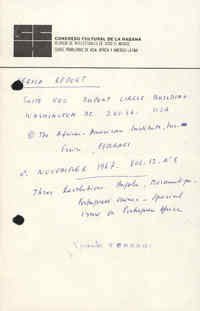 CONGRESO CULTURAL DE LA HABANA
REUNION DE INTELECTUALES DE TODO EL MUNDO
SOBRE PROBLEMAS DE ASIA, AFRICA Y AMERICA LATINA
AFRICA REPORT
SUITE 505 DUPONT CIRCLE BUILDING
WASHINGTON DC 20036 USA
© The African-American Institute, Inc.
FERRARI
NOVEMBER 1967. VOL. 12. Nº 8
Three Revolutions: Angola, Mozambique,
Portuguese Guinea - Special
issue on Portuguese Africa
FERRARI